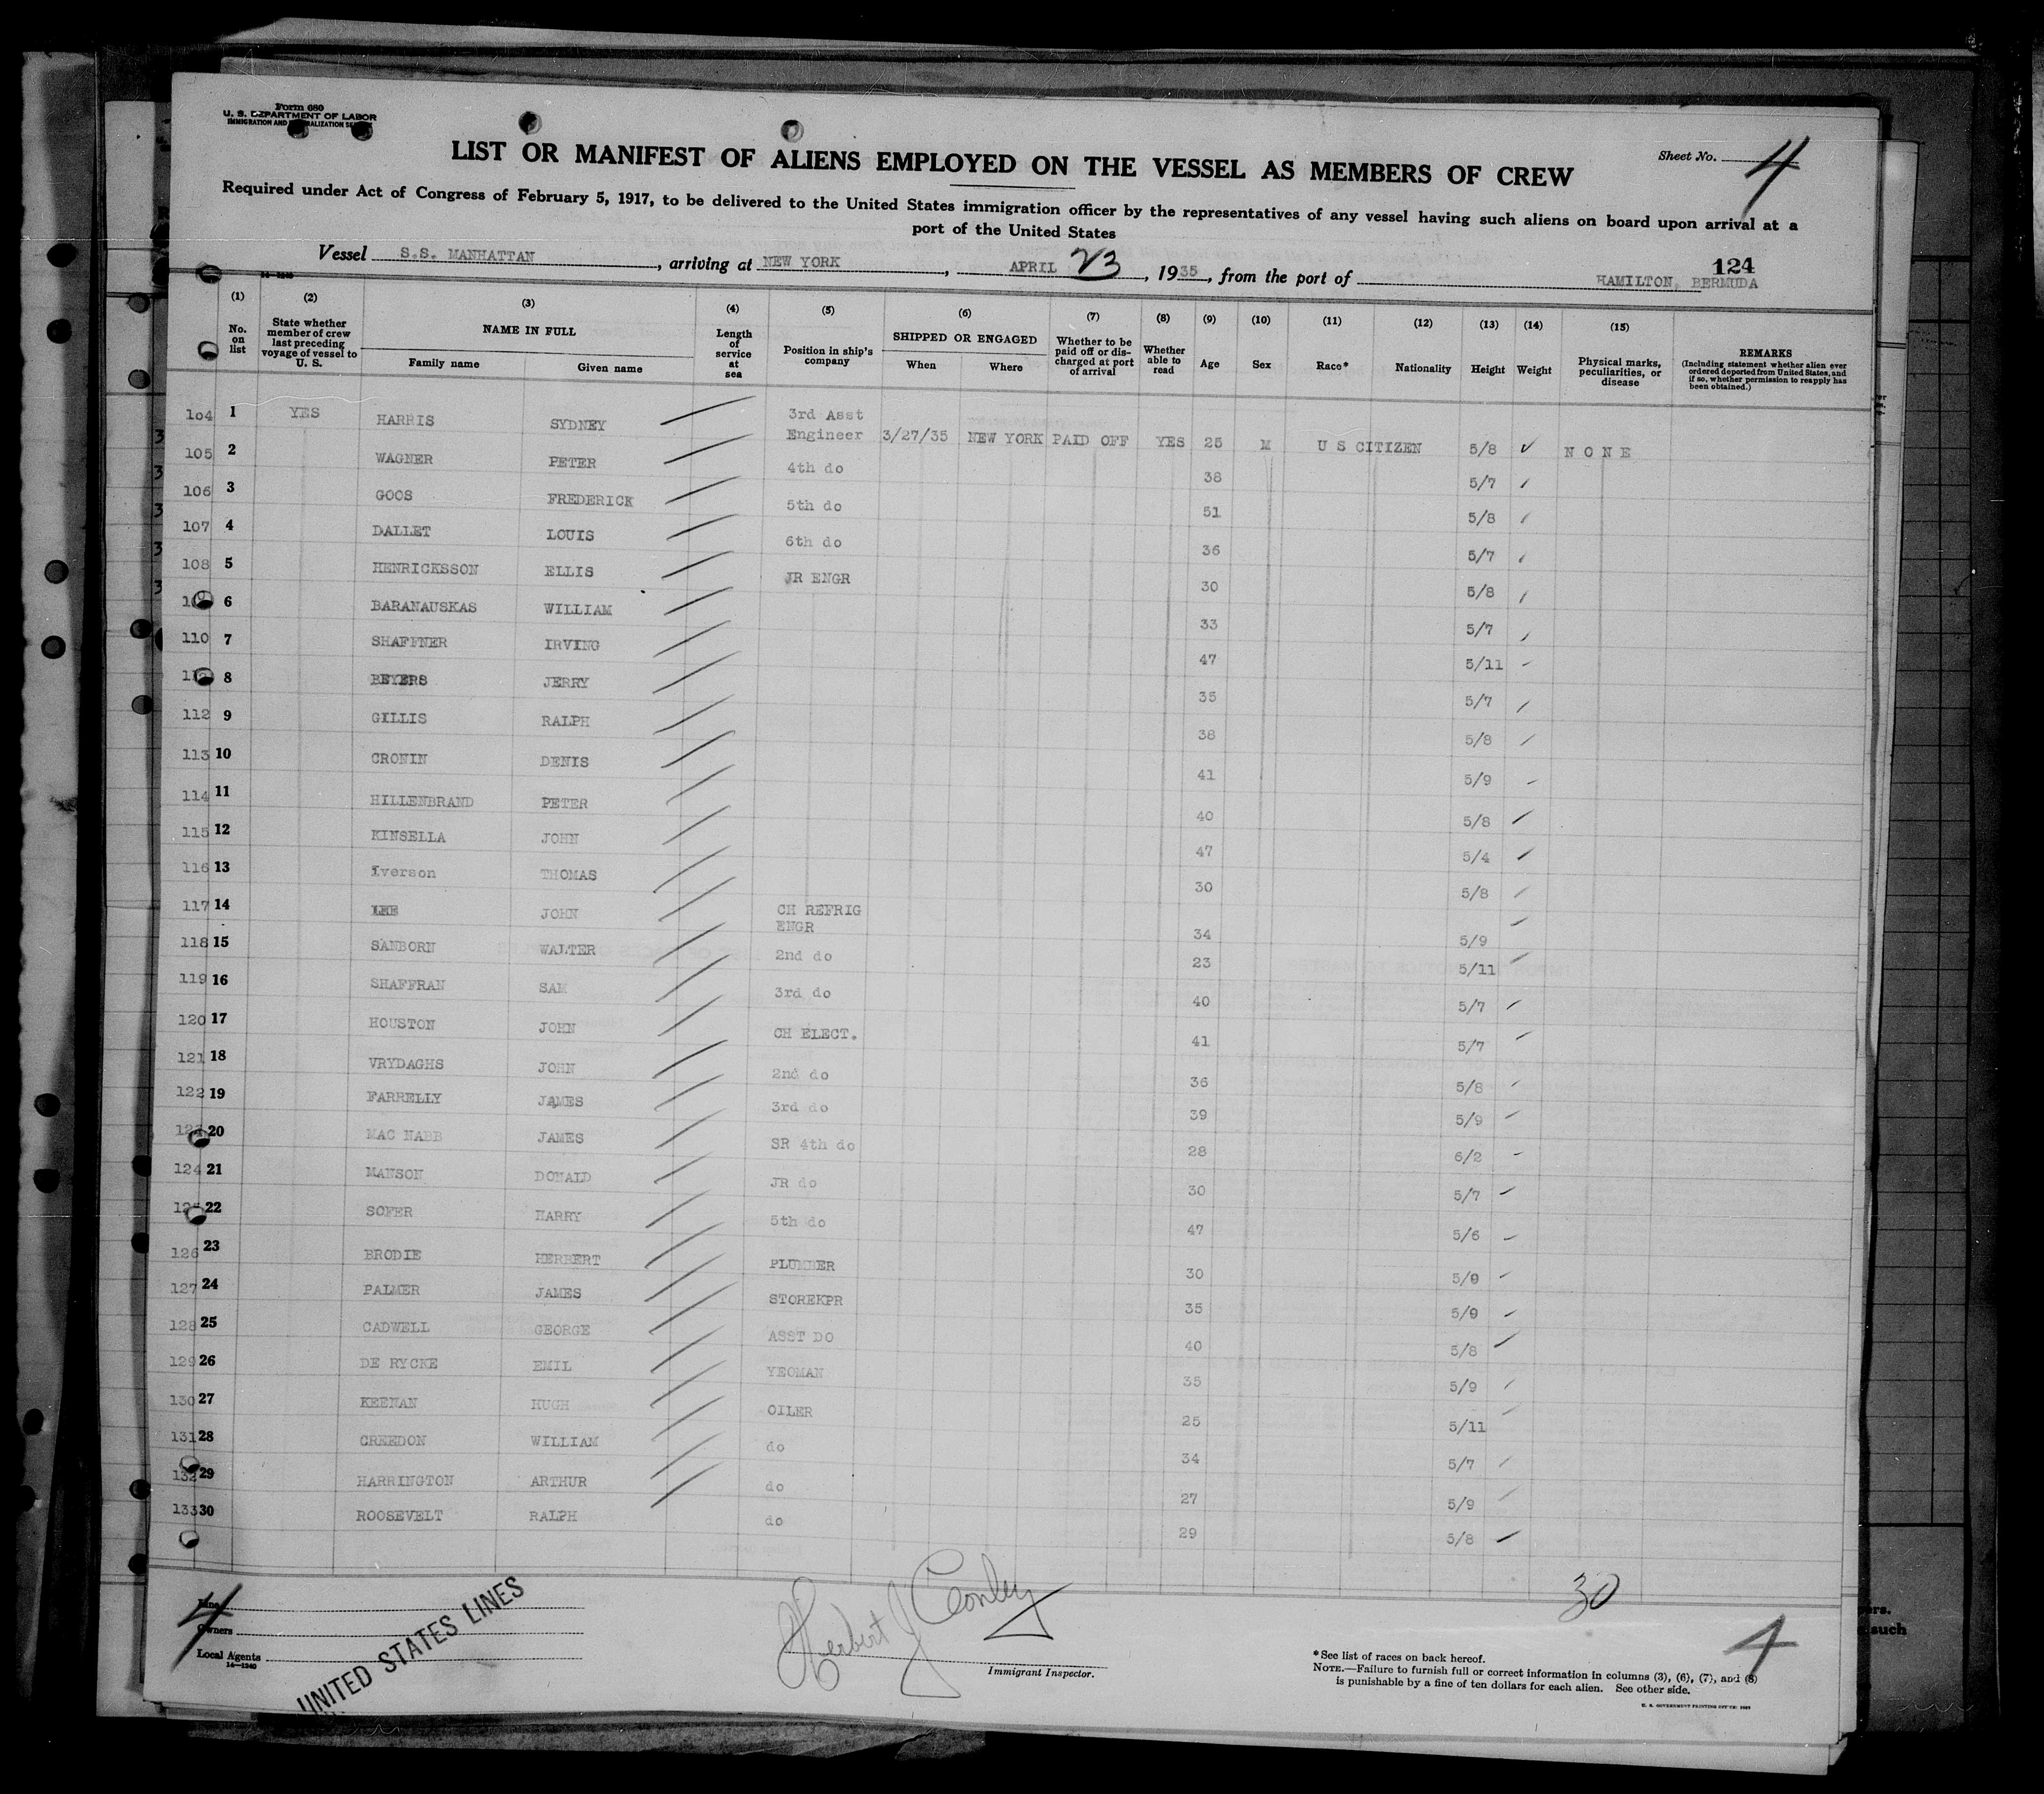 Form 680
U. S. DEPARTMENT OF LABOR
IMMIGRATION AND SERVICE
LIST OR MANIFEST OF ALIENS EMPLOYED ON THE VESSEL AS MEMBERS OF CREW
Sheet No. 4
Required under Act of Congress of February 5, 1917, to be delivered to the United States immigration officer by the representatives of any vessel having such aliens on board upon arrival at a
port of the United States
Vessel S.S. MANHATTAN, arriving at NEW YORK, APRIL 23, 1935, from the port of HAMILTON, BERMUDA
124
(1) (2) (3) (4) (5) (6) (7) (8) (9) (10) (11) (12) (13) (14) (15)
No. on list
State whether member of crew last preceding voyage of vessel to U. S.
NAME IN FULL
Family name Given name
Length of service at sea
Position in ship's company
SHIPPED OR ENGAGED
When Where
Whether to be paid off or discharged at port of arrival
Whether able to read
Age Sex Race* Nationality Height Weight
Physical marks, peculiarities, or disease
REMARKS
(Including statement whether alien ever ordered deported from United States, and if so, whether permission to reapply has been obtained.)
104 1 YES HARRIS SYDNEY 3rd Asst Engineer 3/27/35 NEW YORK PAID OFF YES 25 M U S CITIZEN 5/8 NONE
105 2 WAGNER PETER 4th do 38 5/7
106 3 GOOS FREDERICK 5th do 51 5/8
107 4 DALLET LOUIS 6th do 36 5/7
108 5 HENRICKSSON ELLIS JR ENGR 30 5/8
6 BARANAUSKAS WILLIAM 33 5/7
110 7 SHAFFNER IRVING 47 5/11
8 BEYERS JERRY 35 5/7
112 9 GILLIS RALPH 38 5/8
113 10 CRONIN DENIS 41 5/9
114 11 HILLENBRAND PETER 40 5/8
115 12 KINSELLA JOHN 47 5/4
116 13 Iverson THOMAS 30 5/8
117 14 LEE JOHN CH REFRIG ENGR 34 5/9
118 15 SANBORN WALTER 2nd do 23 5/11
119 16 SHAFFRAN SAM 3rd do 40 5/7
120 17 HOUSTON JOHN CH ELECT. 41 5/7
121 18 VRYDAGHS JOHN 2nd do 36 5/8
122 19 FARRELLY JAMES 3rd do 39 5/9
20 MAC NABB JAMES SR 4th do 28 6/2
124 21 MANSON DONALD JR do 30 5/7
22 SOFER HARRY 5th do 47 5/6
126 23 BRODIE HERBERT PLUMBER 30 5/9
127 24 PALMER JAMES STOREKPR 35 5/9
128 25 CADWELL GEORGE ASST DO 40 5/8
129 26 DE RYCKE EMIL YEOMAN 35 5/9
130 27 KEENAN HUGH OILER 25 5/11
131 28 CREEDON WILLIAM do 34 5/7
132 29 HARRINGTON ARTHUR do 27 5/9
133 30 ROOSEVELT RALPH do 29 5/8
30
4
Line
Owners
Local Agents
14—1240
UNITED STATES LINES
Herbert J Conley
Immigrant Inspector.
4
*See list of races on back hereof.
NOTE.—Failure to furnish full or correct information in columns (3), (6), (7), and (8)
is punishable by a fine of ten dollars for each alien. See other side.